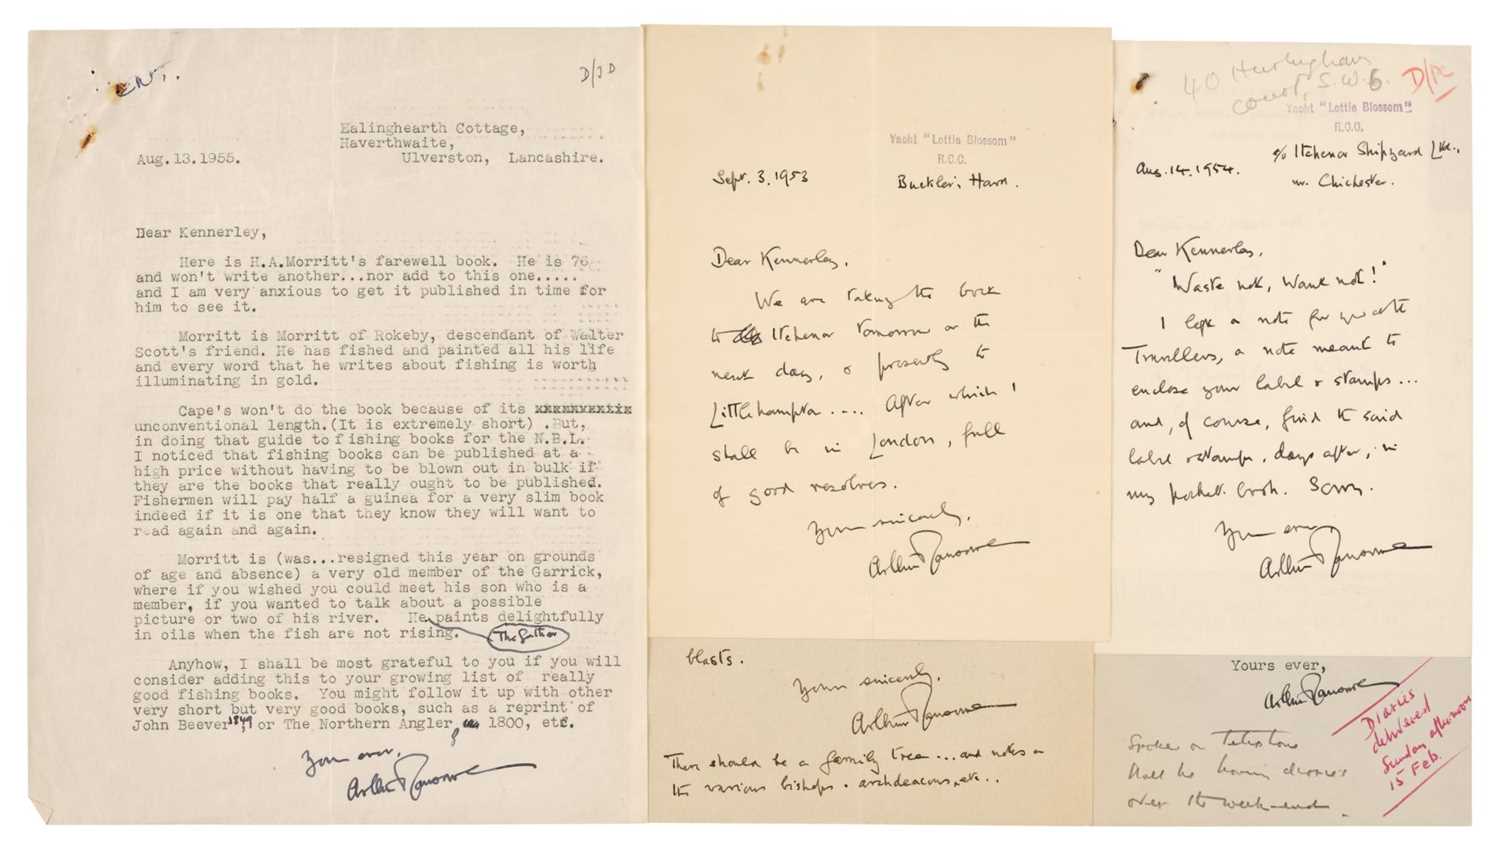 D/JD
Ealinghearth Cottage,
Haverthwaite,
Aug.13.1955. Ulverston, Lancashire.
Dear Kennerley,
Here is H.A.Morritt's farewell book. He is 76
and won't write another...nor add to this one.....
and I am very anxious to get it published in time for
him to see it.
Morritt is Morritt of Rokeby, descendant of Walter
Scott's friend. He has fished and painted all his life
and every word that he writes about fishing is worth
illuminating in gold.
Cape's won't do the book because of its
unconventional length.(It is extremely short) .But,
in doing that guide to fishing books for the N.B.L.
I noticed that fishing books can be published at a
high price without having to be blown out in bulk if
they are the books that really ought to be published.
Fishermen will pay half a guinea for a very slim book
indeed if it is one that they know they will want to
read again and again.
Morritt is (was...resigned this year on grounds
of age and absence) a very old member of the Garrick,
where if you wished you could meet his son who is a
member, if you wanted to talk about a possible
picture or two of his river. He paints delightfully
in oils when the fish are not rising. The father
Anyhow, I shall be most grateful to you if you will
consider adding this to your growing list of really
good fishing books. You might follow it up with other
very short but very good books, such as a reprint of
John Beever 1849, or The Northern Angler, 1800, etc.
Yours ever,
Arthur Ransome
Yacht "Lottie Blossom"
R.C.C.
Sept. 3. 1953 Buckler's Hard.
Dear Kennerley,
We are taking the boat
to Itchenor tomorrow or the
next day, & presently to
Littlehampton .... After which I
shall be in London, full
of good resolves.
Yours sincerely,
Arthur Ransome
40 Hurlingham
Court, S.W.6.
D/PC
Yacht "Lottie Blossom"
R.C.C.
Aug. 14. 1954. c/o Itchenor Shipyard Ltd.,
nr. Chichester.
Dear Kennerley,
"Waste not, want not!"
I kept a note for
Travellers, a note meant to
enclose your label & stamps...
and, of course, find the said
label & stamps, days after, in
my pocket-book. Sorry.
Yours ever,
Arthur Ransome
blasts.
Yours sincerely,
Arthur Ransome
There should be a family tree... and notes on
the various bishops, archdeacons, etc..
Yours ever,
Arthur Ransome
Spoke on Telephone
he having diaries
over the week-end.
Diaries
delivered
Sunday afternoon
15 Feb.